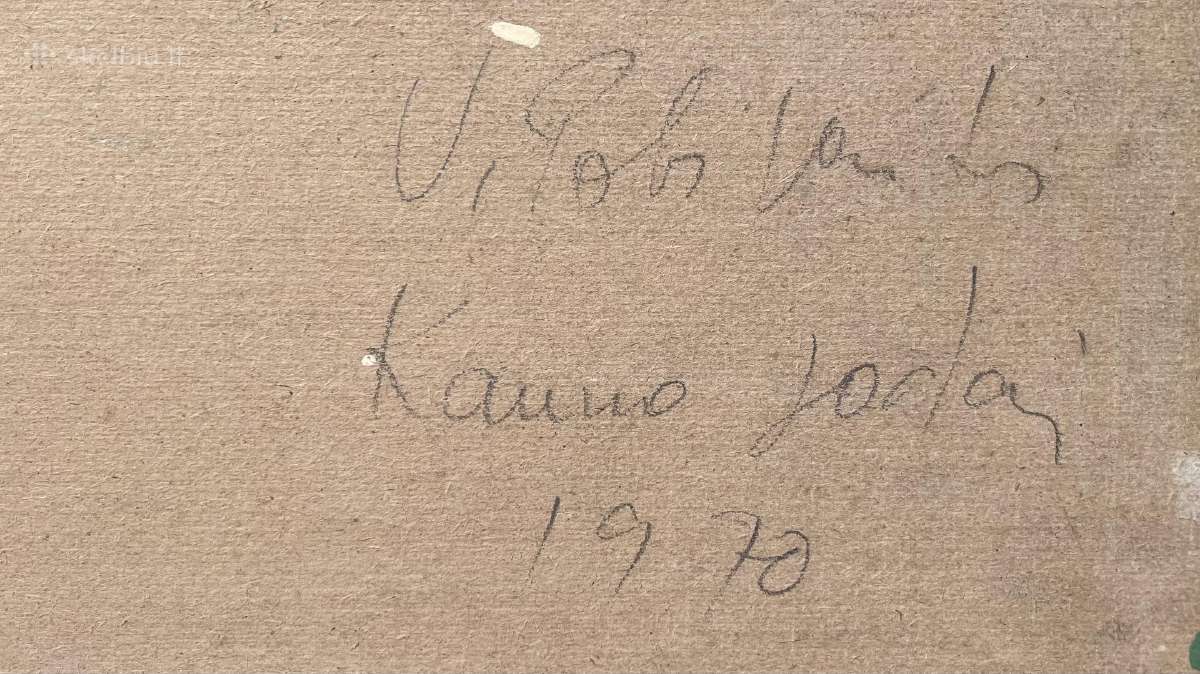 skelbiu.lt
V.
Kauno Sodai
1970